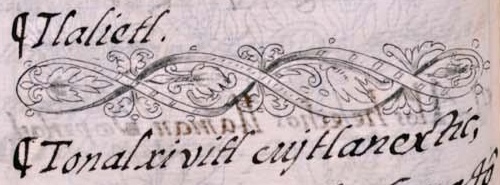 ¶Tlalietl.
¶Tonalxivitl cujtlanextic,